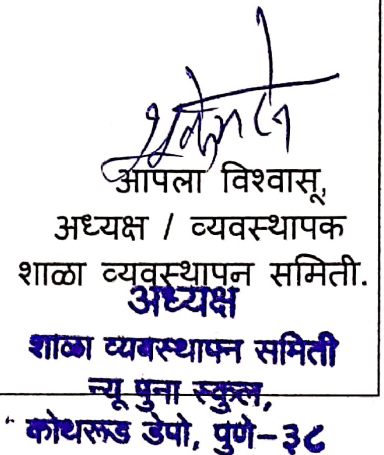 आपला विश्वासू,
अध्यक्ष / व्यवस्थापक
शाळा व्यवस्थापन समिती.
अध्यक्ष
शाळा व्यबस्थापन समिती
न्यू पुना स्कुल,
कोथरूड डेपो, पुणे-३८